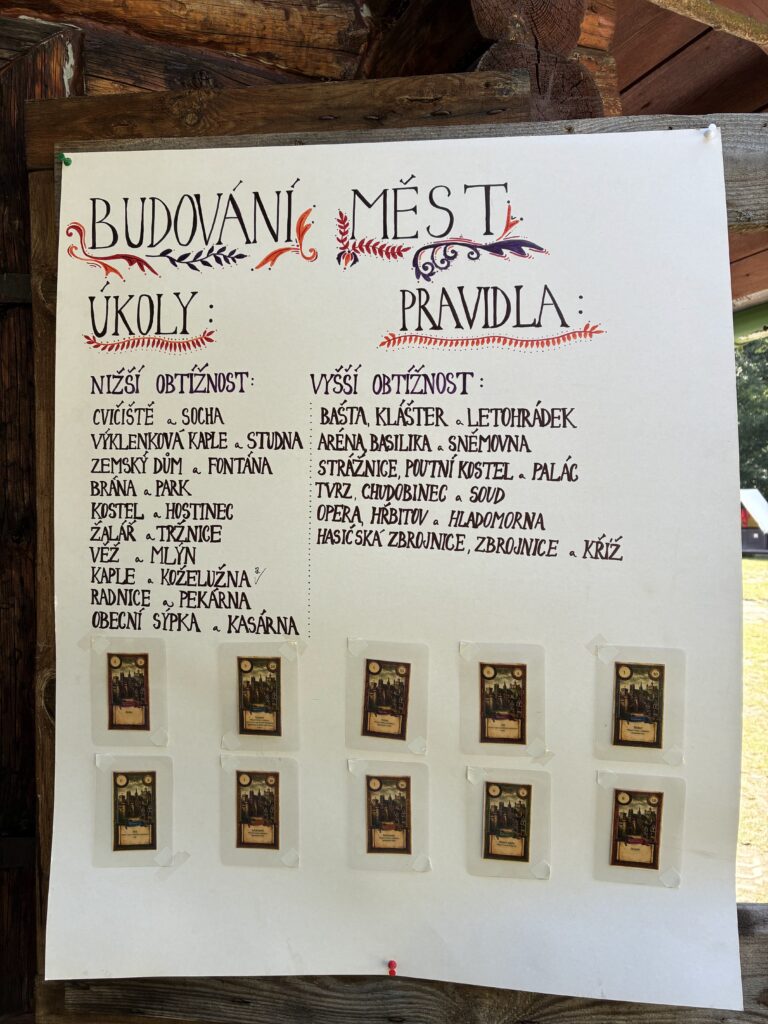 BUDOVÁNÍ MĚST
ÚKOLY:
PRAVIDLA:
NIŽŠÍ OBTÍŽNOST:
CVIČIŠTĚ a SOCHA
VÝKLENKOVÁ KAPLE a STUDNA
ZEMSKÝ DŮM a FONTÁNA
BRÁNA a PARK
KOSTEL a HOSTINEC
ŽALÁŘ a TRŽNICE
VĚŽ a MLÝN
KAPLE a KOŽELUŽNA
RADNICE a PEKÁRNA
OBECNÍ SÝPKA a KASÁRNA
VYŠŠÍ OBTÍŽNOST:
BAŠTA, KLÁŠTER a LETOHRÁDEK
ARÉNA, BASILIKA a SNĚMOVNA
STRÁŽNICE, POUTNÍ KOSTEL a PALÁC
TVRZ, CHUDOBINEC a SOUD
OPERA, HŘBITOV a HLADOMORNA
HASIČSKÁ ZBROJNICE, ZBROJNICE a KŘÍŽ